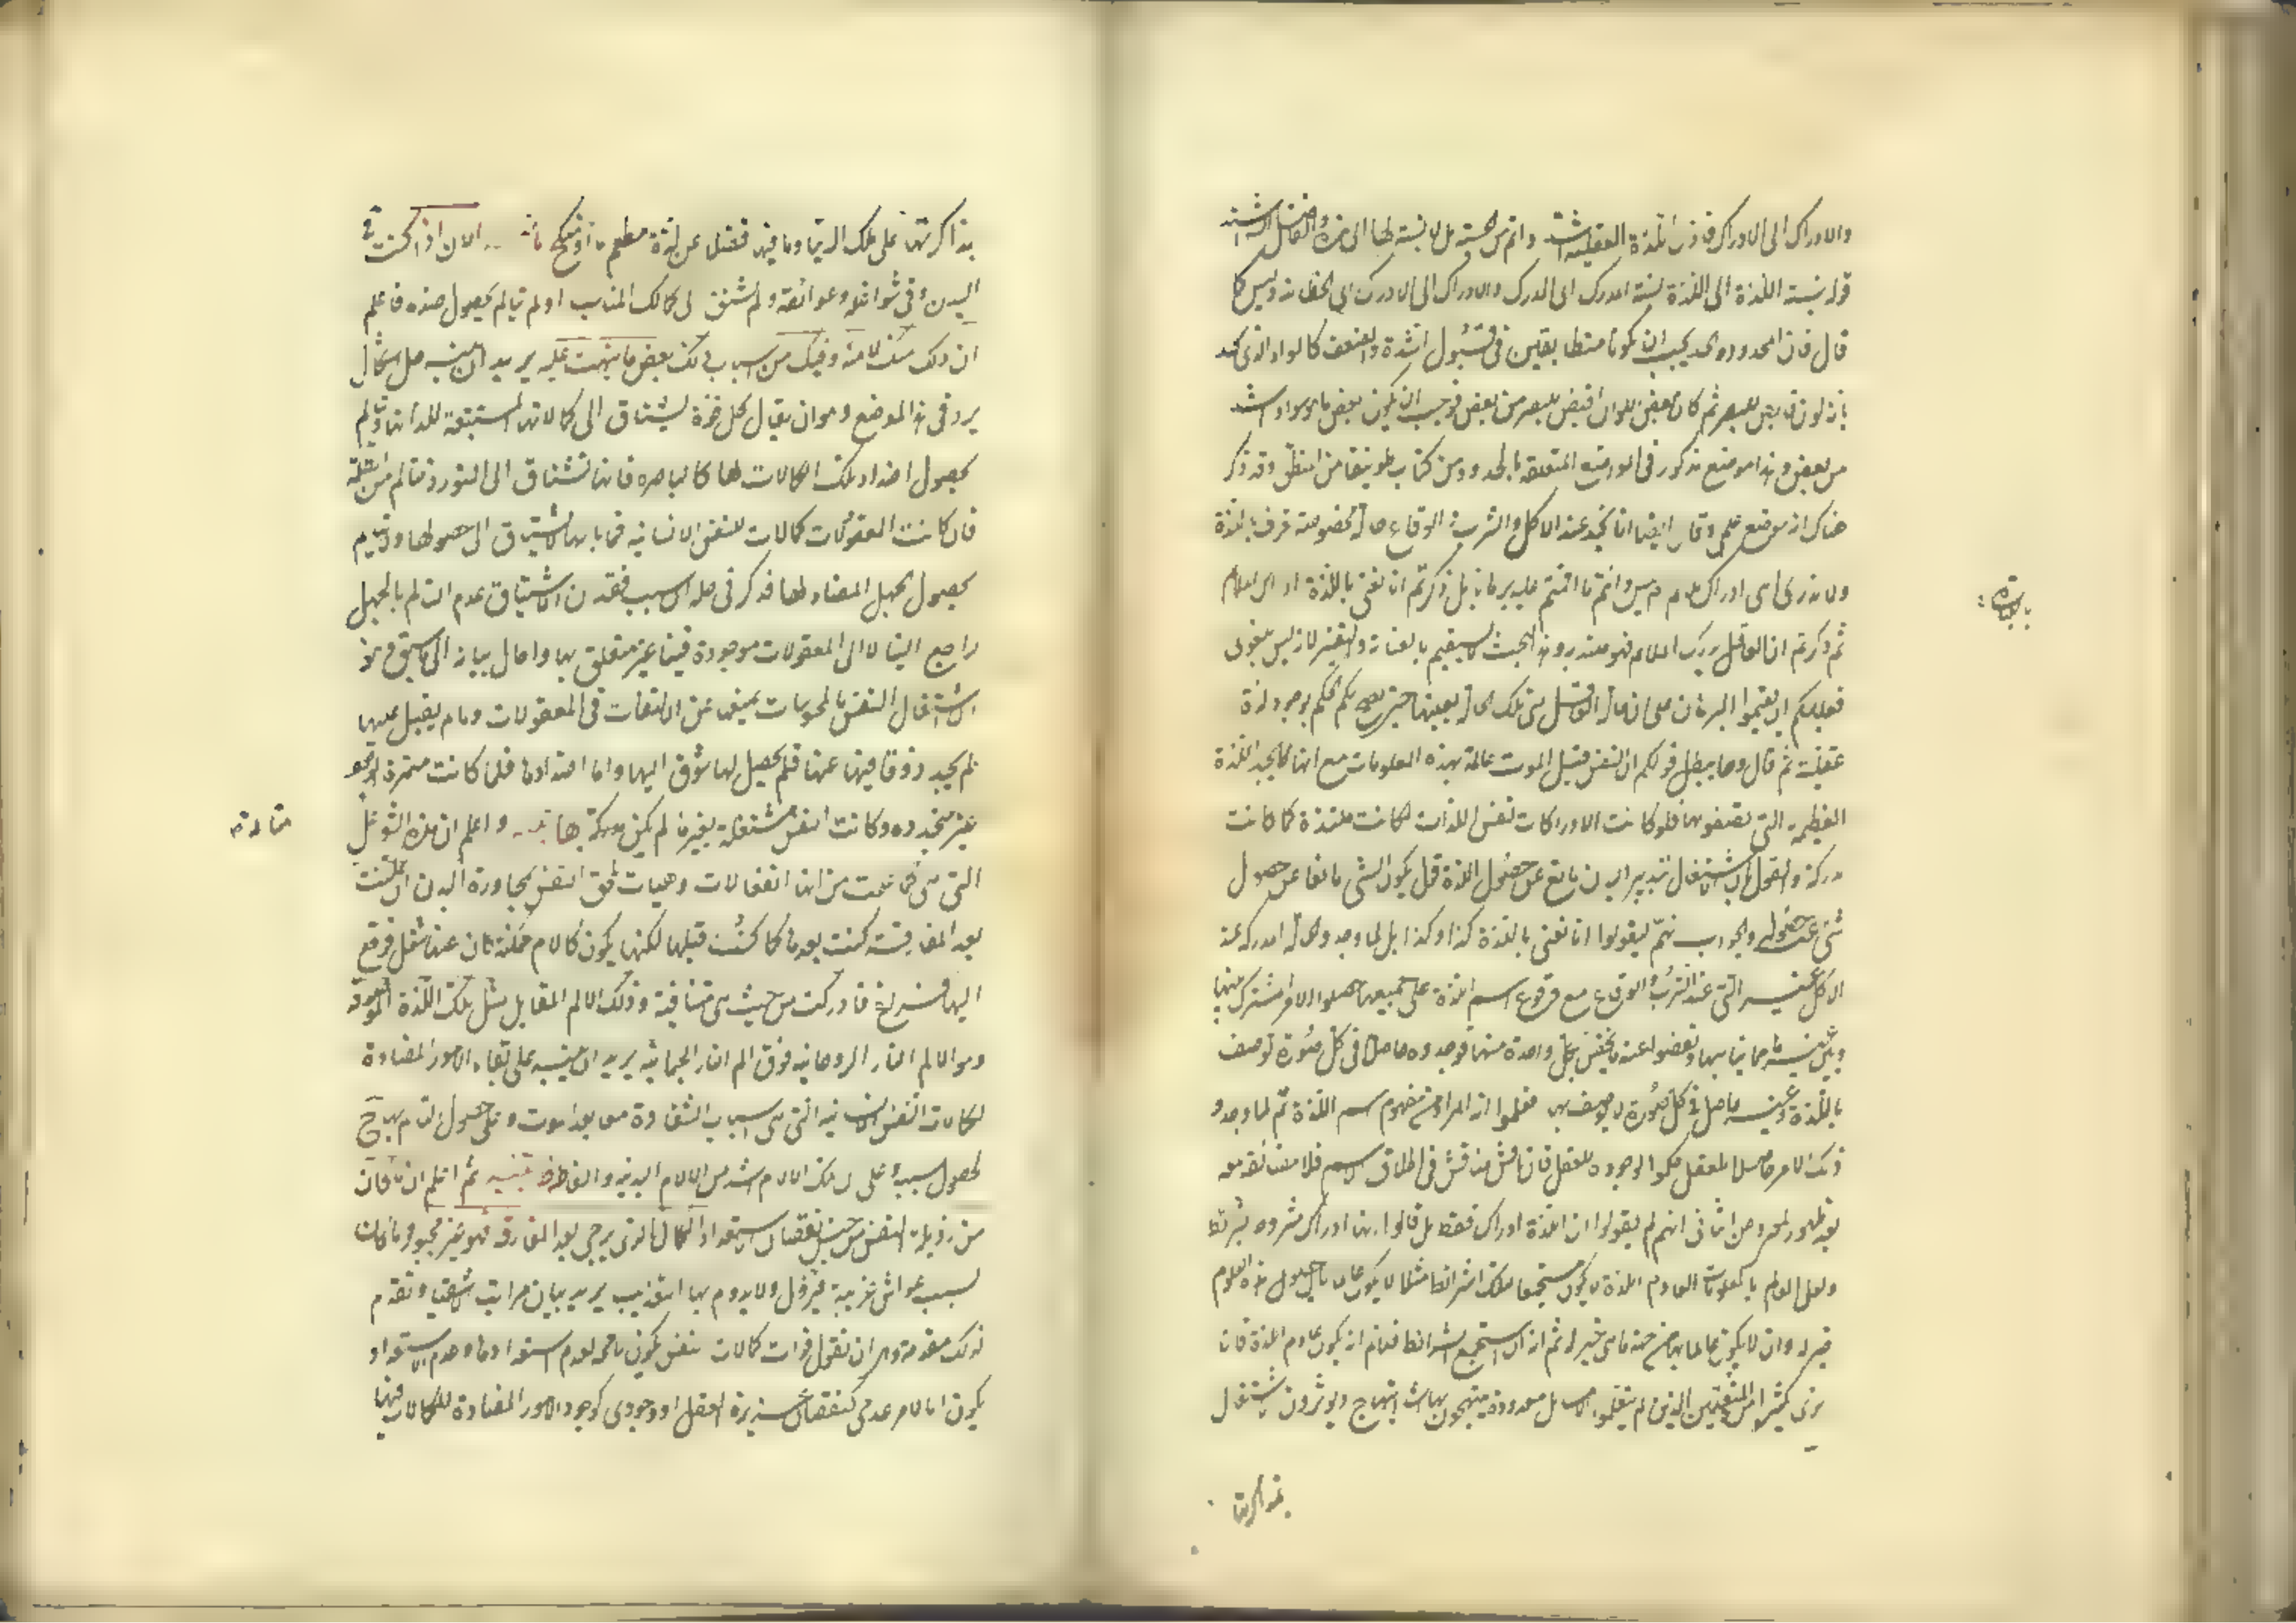 والادراك الى الادراك فاذن اللذة العقلية اشد واتم من الحسية بل لا نسبة لها الى هذه والفاضل الشارح
قوله نسبة اللذة الى اللذة نسبة المدرك الى المدرك والادراك الى الادراك
قال فان المحدود والحد يجب ان يكونا متطابقين في قبول الشدة والضعف كالسواد الذي يحد
بانه لون قابض للبصر ثم كان بعض الالوان اقبض للبصر من بعض فوجب ان يكون بعض ما هو سواد اشد
من بعض وهذا موضع مذكور في المواضع المتعلقة بالحدود من كتاب طوبيقا من المنطق وقد ذكر
هناك انه موضع علمي وقال ايضا انا نجد عند الاكل والشرب والوقاع حالة مخصوصة نعرف باللذة
ولا ندري اهي ادراك ملايم ام ليس وانتم ما اقمتم عليه برهانا بل ذكرتم انا نعني باللذة ادراك الملايم
ثم ذكرتم ان العاقل يدرك الملايم فهو ملتذ به وهذا البحث لا يستقيم بالعناية والتفسير لانه ليس بلغوي
فعليكم ان تقيموا البرهان على ان حالة العاقل هي تلك الحالة بعينها حتى يصح لكم الحكم بوجود لذة
عقلية ثم قال ومما يبطل قولكم ان النفس قبل الموت عالمة بهذه المعلومات مع انها لا تجد اللذة
العظيمة التي تصفونها فلو كانت الادراكات نفس اللذات لكانت ملتذة كما كانت
مدركة والقول بان الاشتغال بتدبير البدن مانع عن حصول اللذة قول بكون الشئ مانعا عن حصول
شئ عند حصوله والجواب انهم لم يقولوا انا نعني باللذة كذا وكذا بل لما وجدوا الحالة المدركة عند
الاكل غير التي عند الشرب والوقاع مع وقوع اسم اللذة على جميعها حصلوا الامر المشترك بينها
وبين غيرها مما يناسبها ونفضوا عنه ما يختص بكل واحدة منها فوجدوه حاصلا في كل صورة توصف
باللذة وغير حاصل في كل صورة لا توصف بها فعلموا انه المراد من مفهوم اسم اللذة ثم لما وجدوا
ذلك الامر حاصلا للعقل حكموا بوجوده للعقل فان ناقش مناقش في اطلاق الاسم فلا مضايقة معه
بعد ظهور المعنى وعن الثاني انهم لم يقولوا ان اللذة ادراك فقط بل قالوا انها ادراك مشروط بشرائط
ولعل العالم بالمعلومات العادم اللذة لا يكون مستجمعا لتلك الشرائط مثلا لا يكون عالما بان حصول هذه العلوم
خير له وان لا يكون عالما بها من جهة ما هي خير له ثم انه ان استجمع الشرائط فعلم انه يكون عادم اللذة فانا
نرى كثيرا من المتعلمين الذين لم يتعلموا الا مسائل معدودة يبتهجون بها اشد ابتهاج ويؤثرون الاشتغال
بمذاكرتها
بمذاكرتها على ملك الدنيا وما فيها فضلا عن لذة مطعم ما او منكح ما الان اذا كنت في
البدن وفي شواغله وعوائقه ولم تشتق الى كمالك المناسب او لم تتالم بحصول ضده فاعلم
ان ذلك منك لا منه وفيك من اسباب ذلك بعض ما نبهت عليه يريد ان ينبه على حل اشكال
يرد في هذا الموضع وهو ان يقال كل قوة تشتاق الى كمالاتها المستتبعة للذاتها وتتالم
بحصول اضداد تلك الكمالات لها كالباصرة فانها تشتاق الى النور وتتالم من الظلمة
فان كانت المعقولات كمالات للنفس الانسانية فما بالها لا تشتاق الى حصولها ولا تتالم
بحصول الجهل المضاد لها فذكر في حله ان سبب فقدان الاشتياق وعدم التالم بالجهل
راجع الينا لا الى المعقولات موجودة فينا غير متعلق بها واحال بيانه الى ما سبق وهو
اشتغال النفس بالمحسوسات يمنعها عن الالتفات الى المعقولات وما لم يقبل عليها
لم يجد ذوقا منها فلم يحصل لها شوق اليها واما اضدادها فلما كانت مستمرة الوجود
غير متجددة وكانت النفس مشتغلة بغيرها لم تكن مدركة لها تنبيه واعلم ان هذه الشواغل
التي هي كما علمت من انها انفعالات وهيات تلحق النفس بمجاورة البدن ان تمكنت
بعد المفارقة كنت بعدها كما كنت قبلها لكنها تكون كآلام متمكنة كان عنها شغل فوقع
اليها فراغ فادركت من حيث هي منافية وذلك الالم المقابل لمثل تلك اللذة الموصوفة
وهو الم النار الروحانية فوق الم النار الجسمانية يريد ان ينبه على بقاء الامور المضادة
لكمالات النفس الانسانية التي هي اسباب الشقاوة معها بعد الموت وعلى حصول التالم بها
لحصول سببه وعلى ان تلك الالام اشد من الالام البدنية والفاظه تنبيه ثم اعلم ان ما كان
من رذيلة النفس من جنس نقصان الاستعداد للكمال الذي يرجى بعد المفارقة فهو غير مجبور وما كان
بسبب غواش غريبة فيزول ولا يدوم بها التعذيب يريد بيان مراتب الاشقياء ونقدم
لذلك مقدمة وهي ان نقول فوات كمالات النفس يكون اما لعدم استعدادها وعدم الاستعداد
يكون اما لامر عدمي كنقصان غريزة العقل او وجودي كوجود الامور المضادة للكمالات فيها